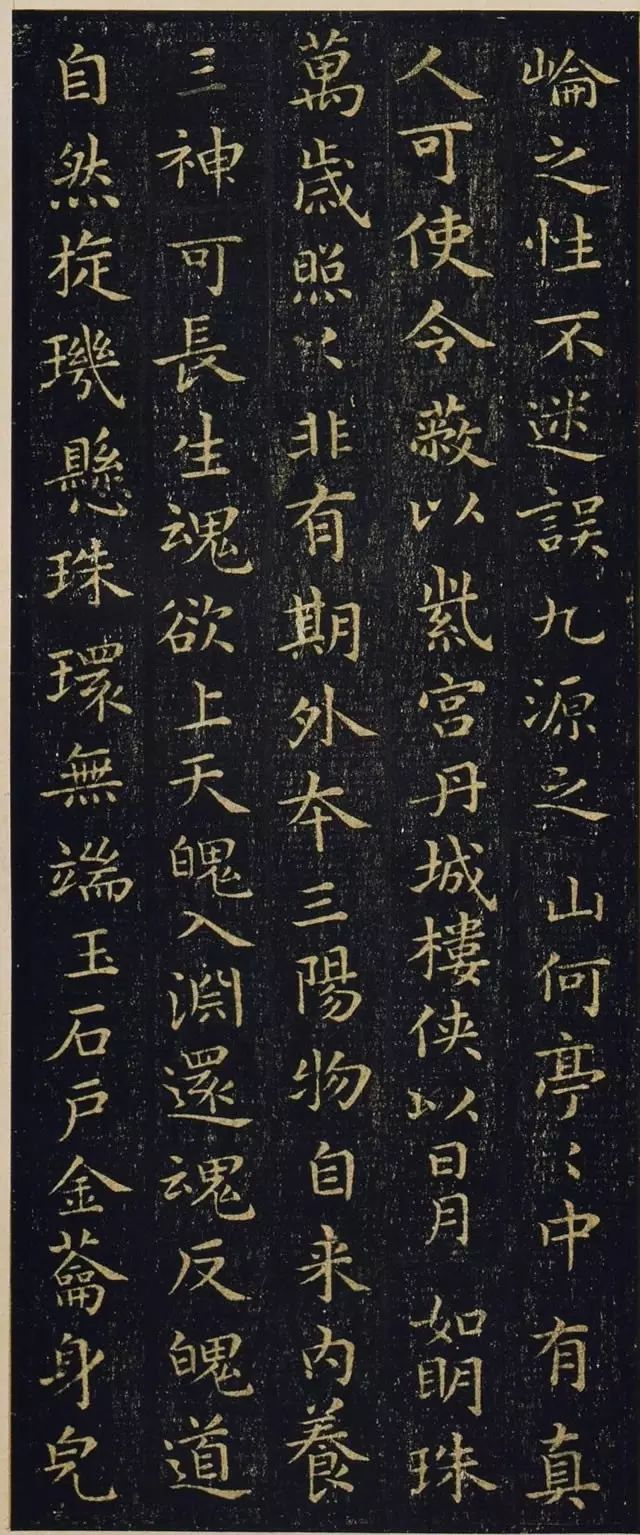 崘之性不迷誤九源之山何亭〻中有真
人可使令蔽以紫宮丹城樓侠以日月如明珠
萬歲照〻非有期外夲三陽物自来内養
三神可長生魂欲上天魄入淵還魂反魄道
自然㫌璣懸珠環無端玉石戶金蘥身皃